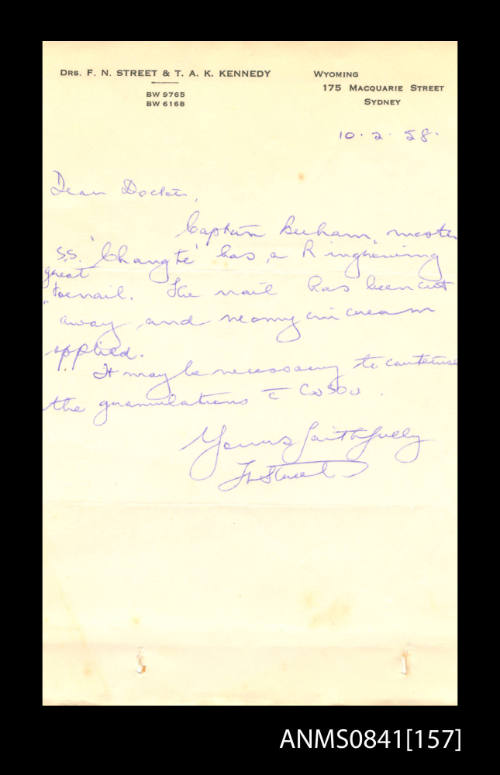 DRS. F. N. STREET & T. A. K. KENNEDY
BW 9765
BW 6168
WYOMING
175 MACQUARIE STREET
SYDNEY
10.2.58.
Dear Doctor,
Captain, master
S.S. 'Changte' has a R ingrowing
great
toenail. The nail has been cut
away and neomycin cream
applied.
It may be necessary to cauterise
the granulations c̄ CuSO4.
Yours faithfully
FNStreet
ANMS0841[157]